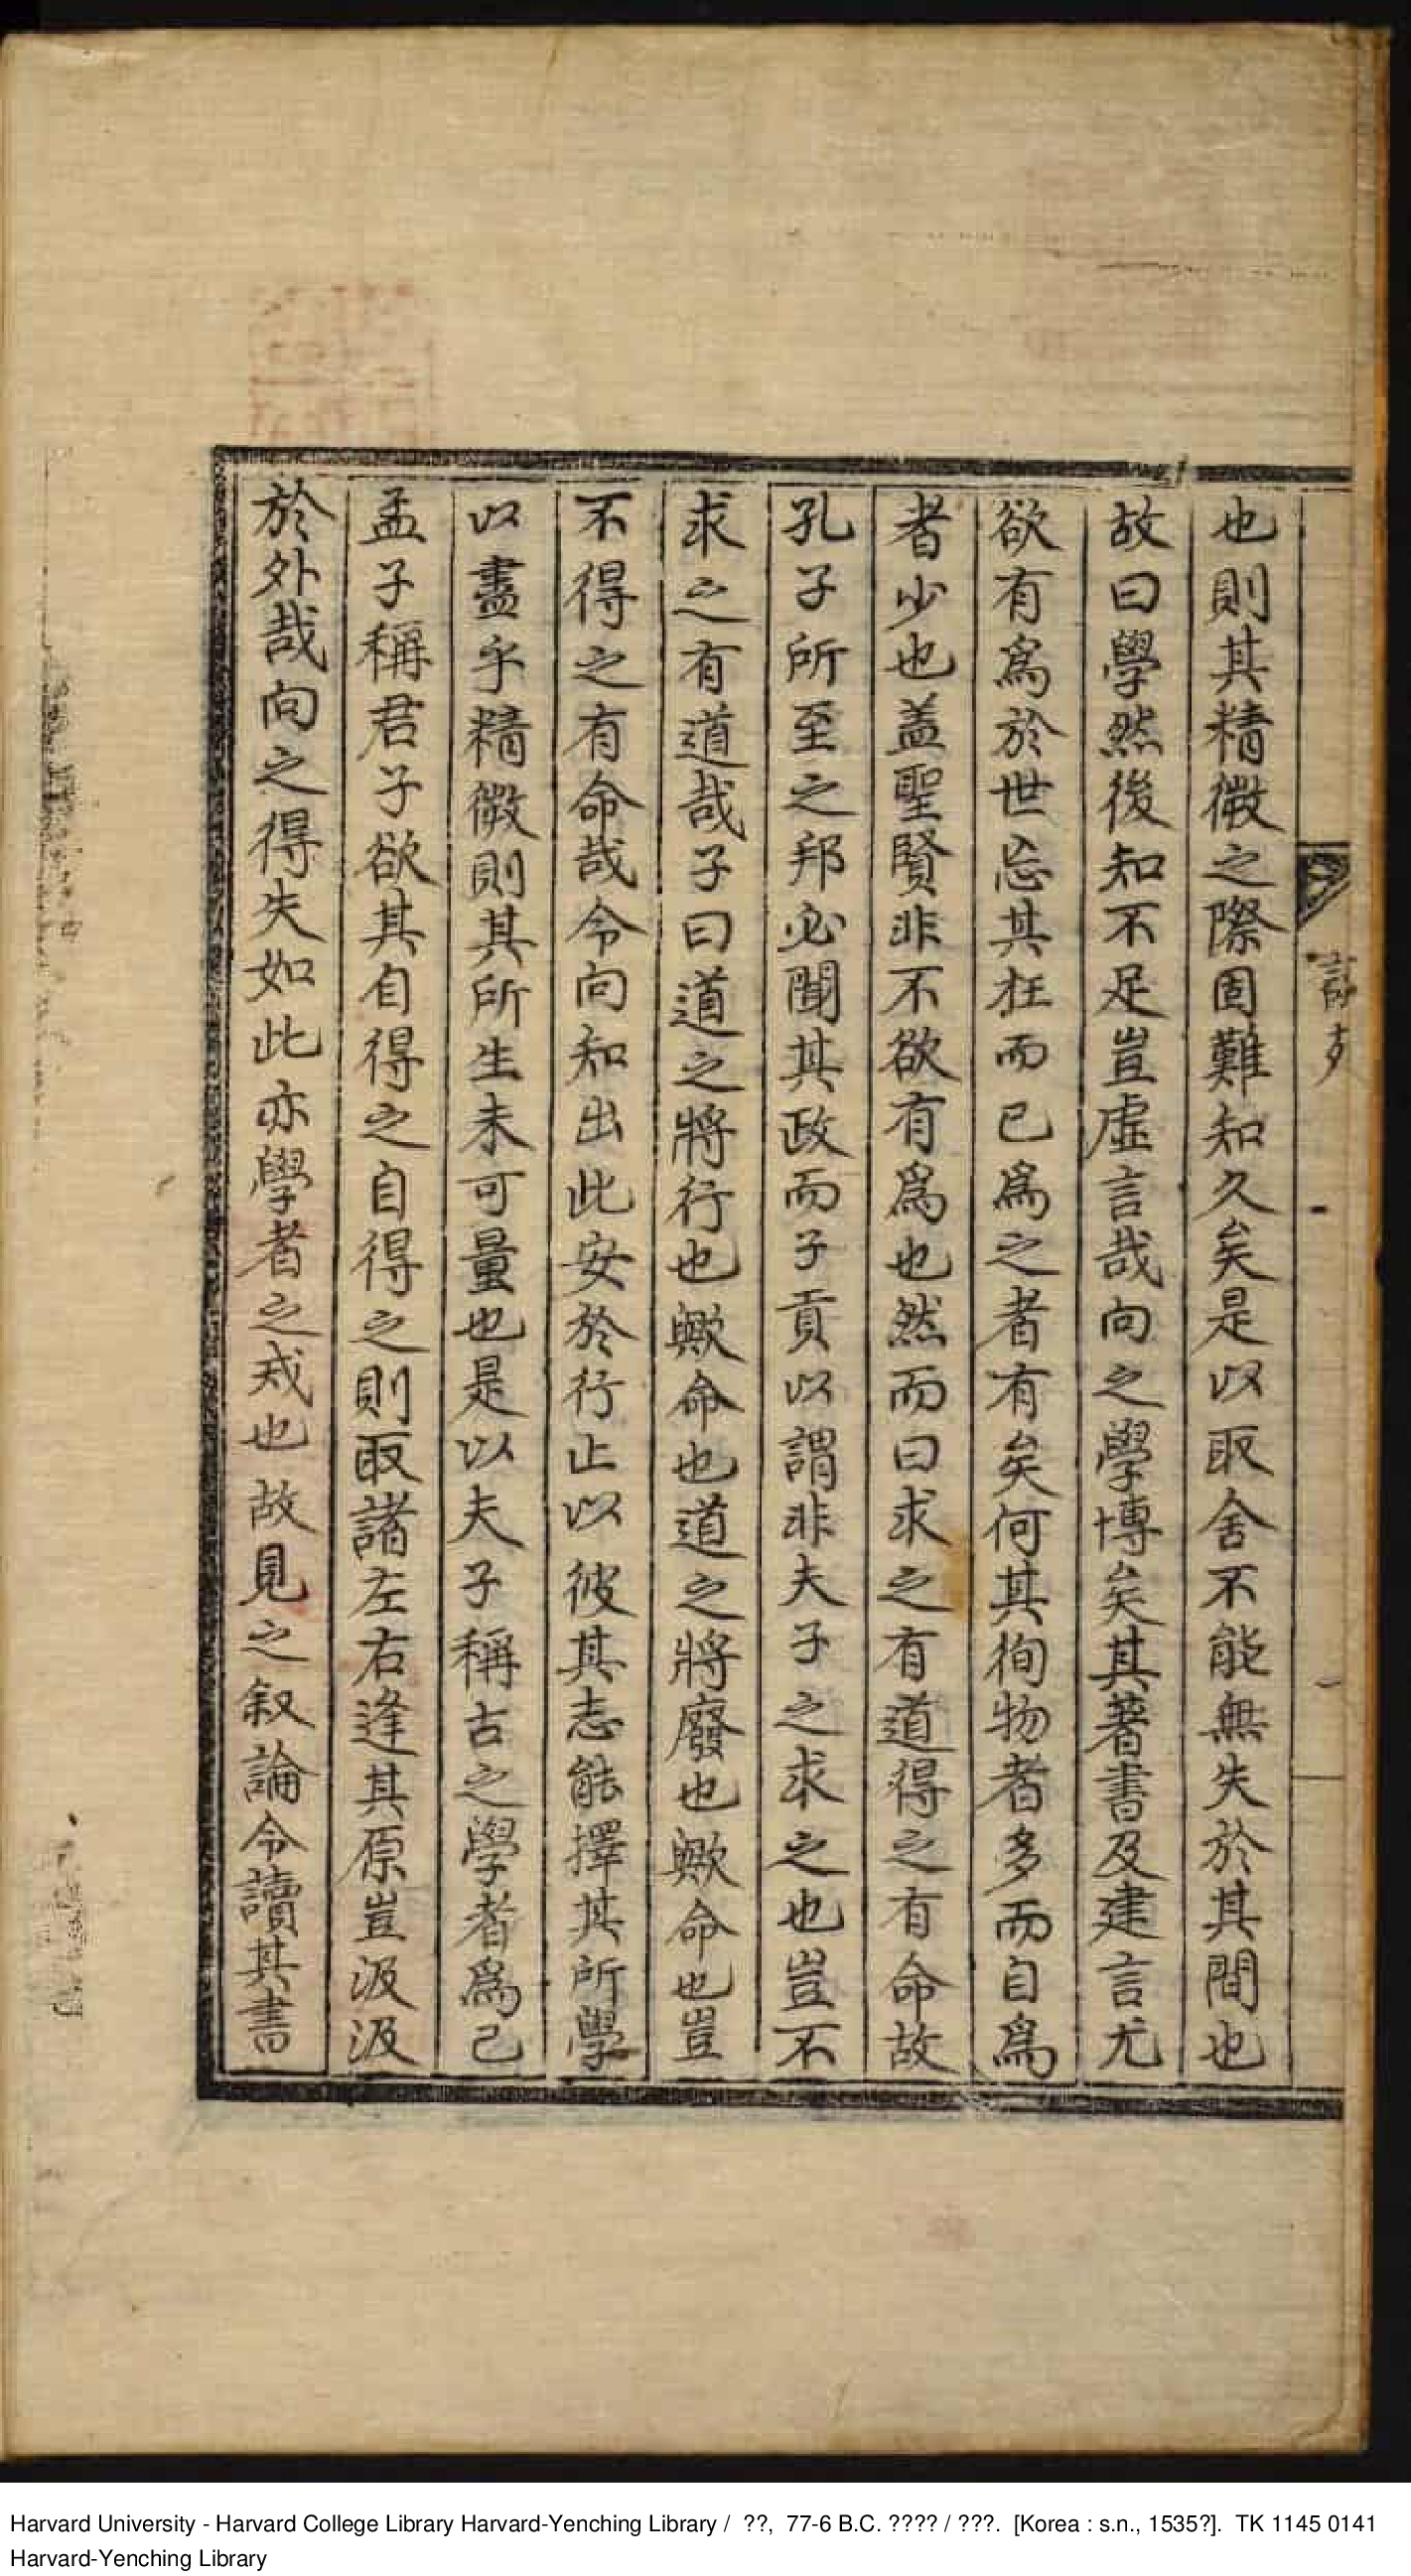 也則其精微之際固難知久矣是以取舍不能無失於其間也
故曰學然後知不足豈虛言哉向之學博矣其著書及建言尤
欲有爲於世忘其枉而已爲之者有矣何其徇物者多而自爲
者少也盖聖賢非不欲有爲也然而曰求之有道得之有命故
孔子所至之邦必聞其政而子貢以謂非夫子之求之也豈不
求之有道哉子曰道之將行也歟命也道之將廢也歟命也豈
不得之有命哉令向知出此安於行止以彼其志能擇其所學
以盡乎精微則其所生未可量也是以夫子稱古之學者爲己
孟子稱君子欲其自得之自得之則取諸左右逢其原豈汲汲
於外哉向之得失如此亦學者之戒也故見之叙論令讀其書
Harvard University - Harvard College Library Harvard-Yenching Library / ??, 77-6 B.C. ???? / ???. [Korea : s.n., 1535?]. TK 1145 0141
Harvard-Yenching Library